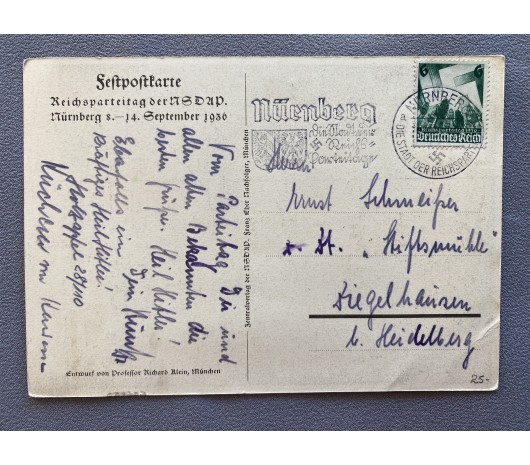 Festpostkarte
Reichsparteitag der NSDAP.
Nürnberg 8.—14. September 1936
Vom Parteitag Dir und
allen alten Bekannten die
besten Grüße. Heil Hitler!
Ebenfalls ein
Nürnberg
die Stadt der
Reichs=
parteitage
NÜRNBERG
DIE STADT DER REICHSPARTEITAGE
6
6
Reichsparteitag 1936
Deutsches Reich
Herrn
Ernst Schmeißer
z. Zt. "Stiftsmühle"
Ziegelhausen
b. Heidelberg
Zentralverlag der NSDAP. Franz Eher Nachfolger, München
Entwurf von Professor Richard Klein, München
25.-